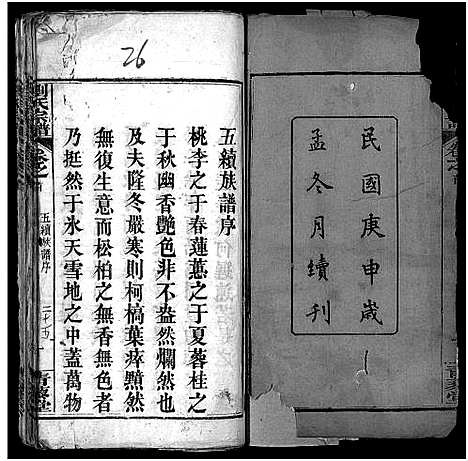 民國庚申歲
孟冬月續刊
1
26
五續族譜序
桃李之于春蓮蕙之于夏蓉桂之
于秋幽香艷色非不盎然爛然也
及夫隆冬嚴寒則柯槁葉瘁顯然
無復生意而松柏之無香無色者
乃挺然于氷天雪地之中蓋萬物
五續族譜序